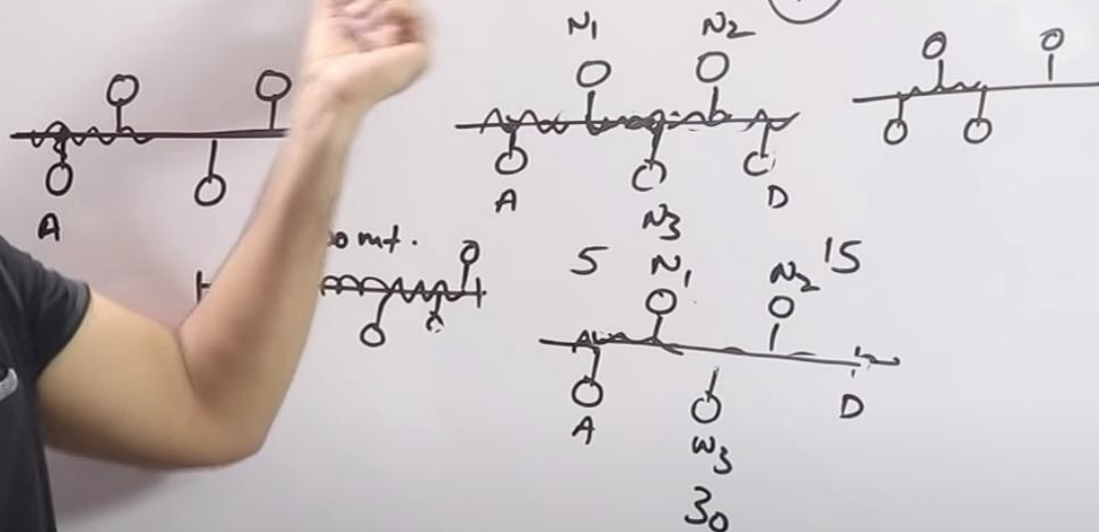 N1 N2
A
A D
N3
mt.
5 N1 N2 15
A D
W3
30